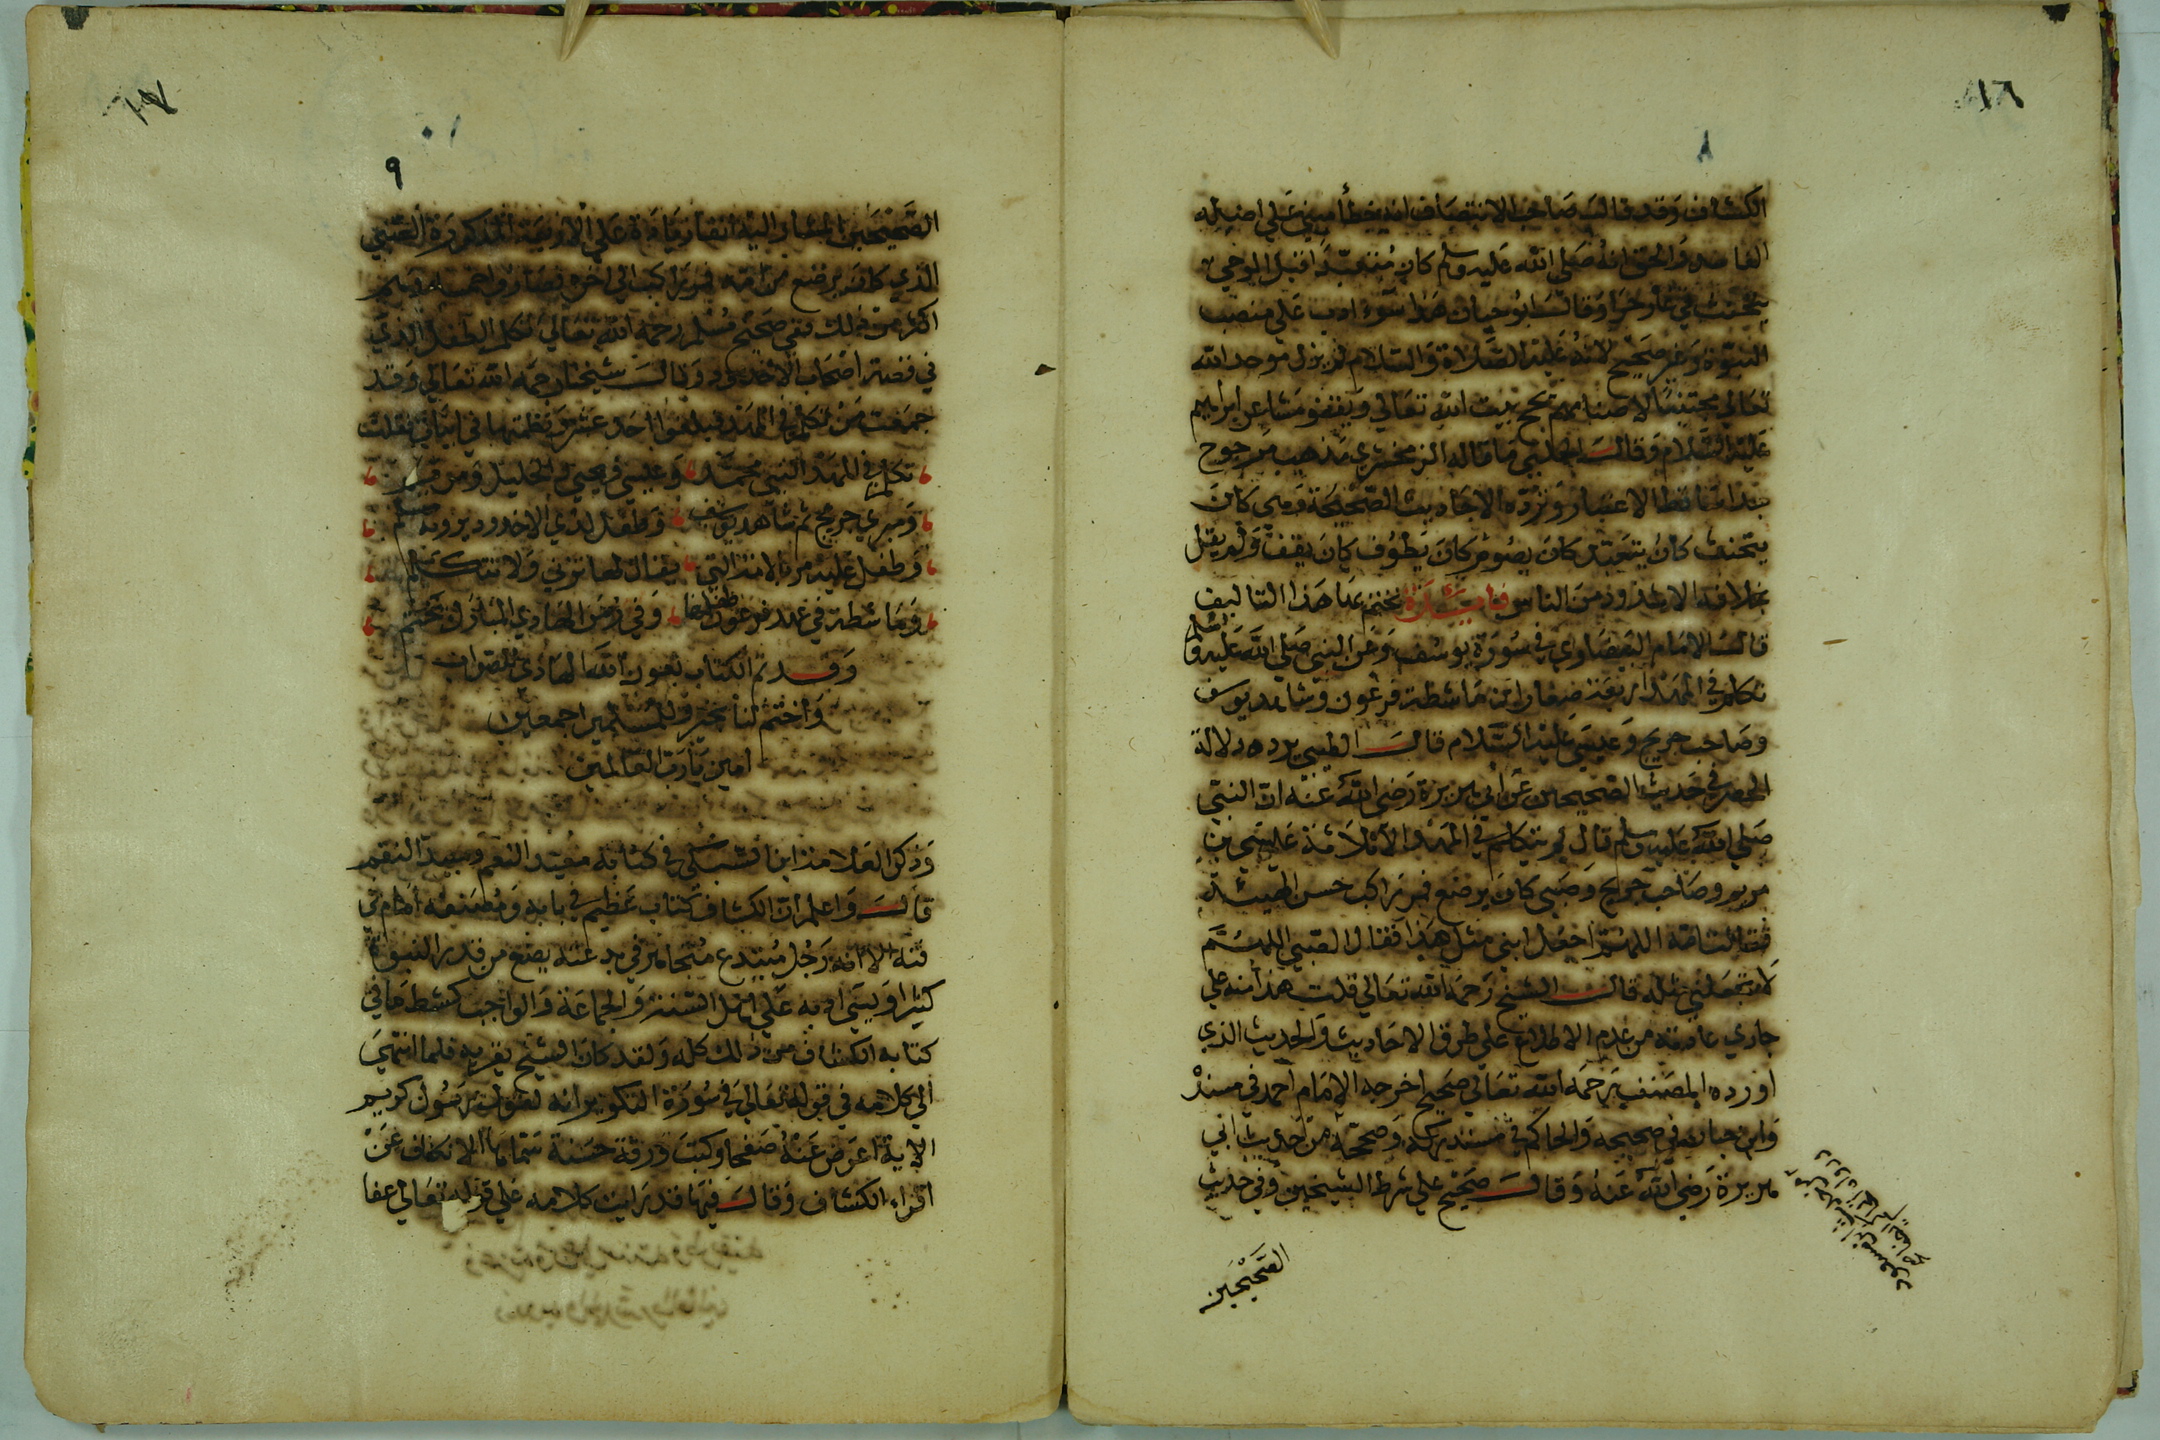 ٨١٦
٨
الكشاف وقد قال صاحب الانتصاف انه خطأ مبني على اصله
الفاسد والحق انه صلى الله عليه وسلم كان متعبدا قبل الوحي
يتحنث في غار حرا وقال ابو حيان هذا سوء ادب على منصب
النبوة وغير صحيح لانه عليه الصلاة والسلام لم يزل موحد الله
تعالى مجتنبا لاصنامهم يحج بيت الله تعالى ويقفو مشاعر ابراهيم
عليه السلام وقال الحلبي ما قاله الزمخشري مذهب مرجوح
ساقط الاعتبار وترده الاحاديث الصحيحة ومى كان
يتحنث كان يتعبد كان يصوم كان يطوف كان يقف ولم يقل
بخلافه الا من الناس فائدة نختم بها هذا التاليف
قال الامام البيضاوي في سورة يوسف وعن النبي صلى الله عليه وسلم
تكلم في المهد اربعة صغار ابن ماشطة فرعون وشاهد يوسف
وصاحب جريج وعيسى عليه السلام قال الطيبي يرده دلالة
الحصر في حديث الصحيحين عن ابي هريرة رضي الله عنه ان النبي
صلى الله عليه وسلم قال لم يتكلم في المهد الا ثلاثة عيسى بن
مريم وصاحب جريج وصبي كان يرضع فمر راكب حسن الهيئة
فقالت امه اللهم اجعل ابني مثل هذا فقال الصبي اللهم
لا تجعلني مثله قال الشيخ رحمه الله تعالى قلت هذا منه على
جاري عادته من عدم الاطلاع على طرق الاحاديث والحديث الذي
اورده المصنف رحمه الله تعالى صحيح اخرجه الامام احمد في مسنده
وابن حبان في صحيحه والحاكم في مستدركه وصححه من حديث ابي
هريرة رضي الله عنه وقال صحيح على شرط الشيخين وفي حديث
الصحيحين
٩
الصحيحين المشار اليه انفا زيادة على الاربعة المذكورة الصبي
الذي كان يرضع من امه فمر راكب الى اخره فصاروا خمسة وهم
اكثر من ذلك ففي صحيح مسلم رحمه الله تعالى تكلم الطفل الذي
في قصة اصحاب الاخدود وقال شيخنا رحمه الله تعالى وقد
جمعت من تكلم في المهد فبلغوا احد عشر ونظمتها في ابيات فقلت
تكلم في المهد النبي محمد وعيسى ويحيى والخليل ومريم
ومبري جريج ثم شاهد يوسف وطفل لذي الاخدود يرويه مسلم
وطفل عليه مر بالامة التي يقال لها تزني ولا تتكلم
وماشطة في عهد فرعون طفلها وفي زمن الهادي المبارك يختم
وقد تم الكتاب بعون الله الهادي للصواب
واختم لنا بخير وللمسلمين اجمعين
امين يا رب العالمين
وذكر العلامة ابن السبكي في كتابه معيد النعم ومبيد النقم
قال واعلم ان الكشاف كتاب عظيم في بابه ومصنفه امام في
فنه الا انه رجل مبتدع متجاهر ببدعته يضع من قدر النبوة
كثيرا ويسيء ادبه على اهل السنة والجماعة والواجب كشط ما في
كتابه الكشاف من ذلك كله ولقد كان الشيخ يقريه فلما انتهى
الى كلامه في قوله تعالى في سورة التكوير انه لقول رسول كريم
الاية اعرض عنه صفحا وكتب ورقة حسنة سماها الانكفاف عن
اقراء الكشاف وقال فيها قد رايت كلامه على قوله تعالى عفا